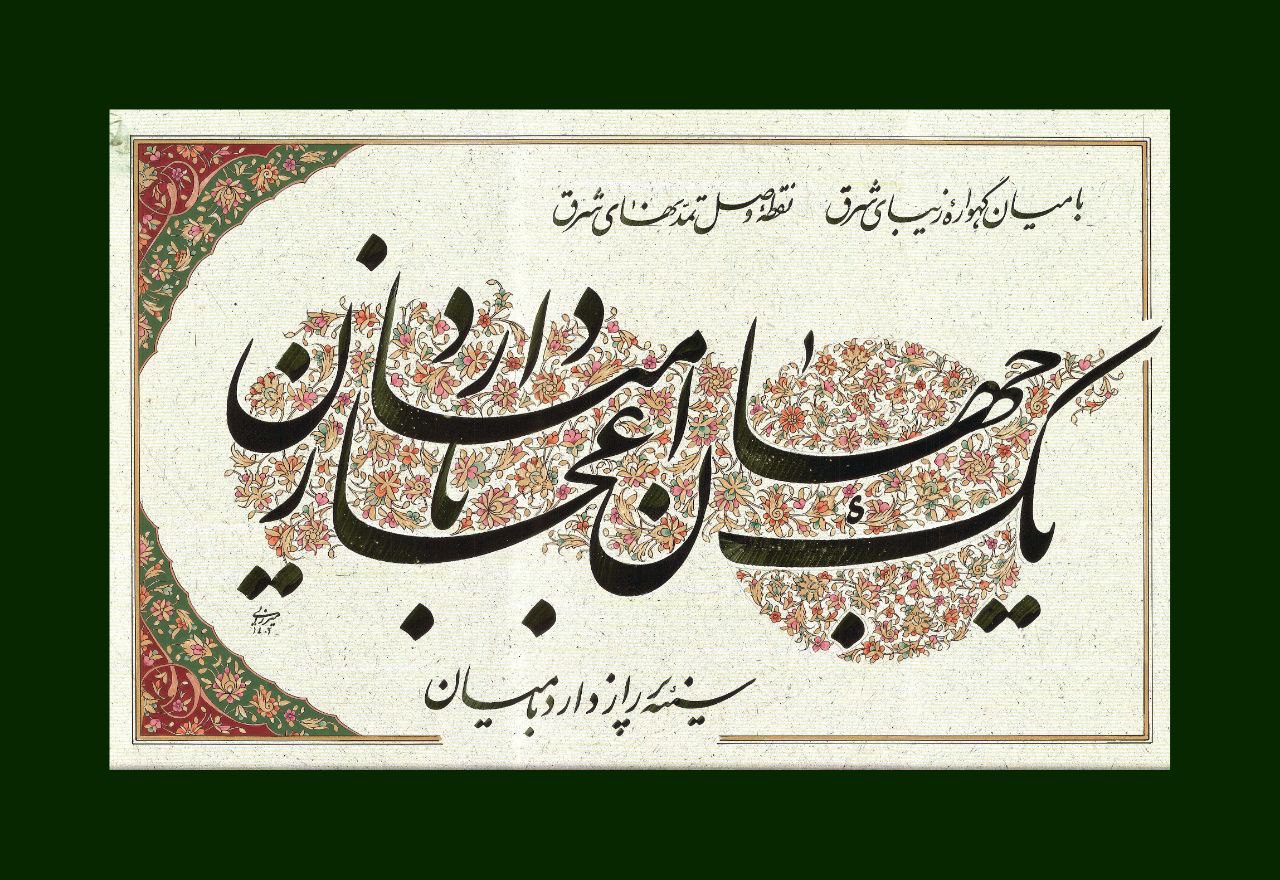 بامیان گهوارهٔ زیبای شرق نقطهٔ وصل تمدنهای شرق
یک جهان اعجاز دارد بامیان
سینهٔ پر راز دارد بامیان